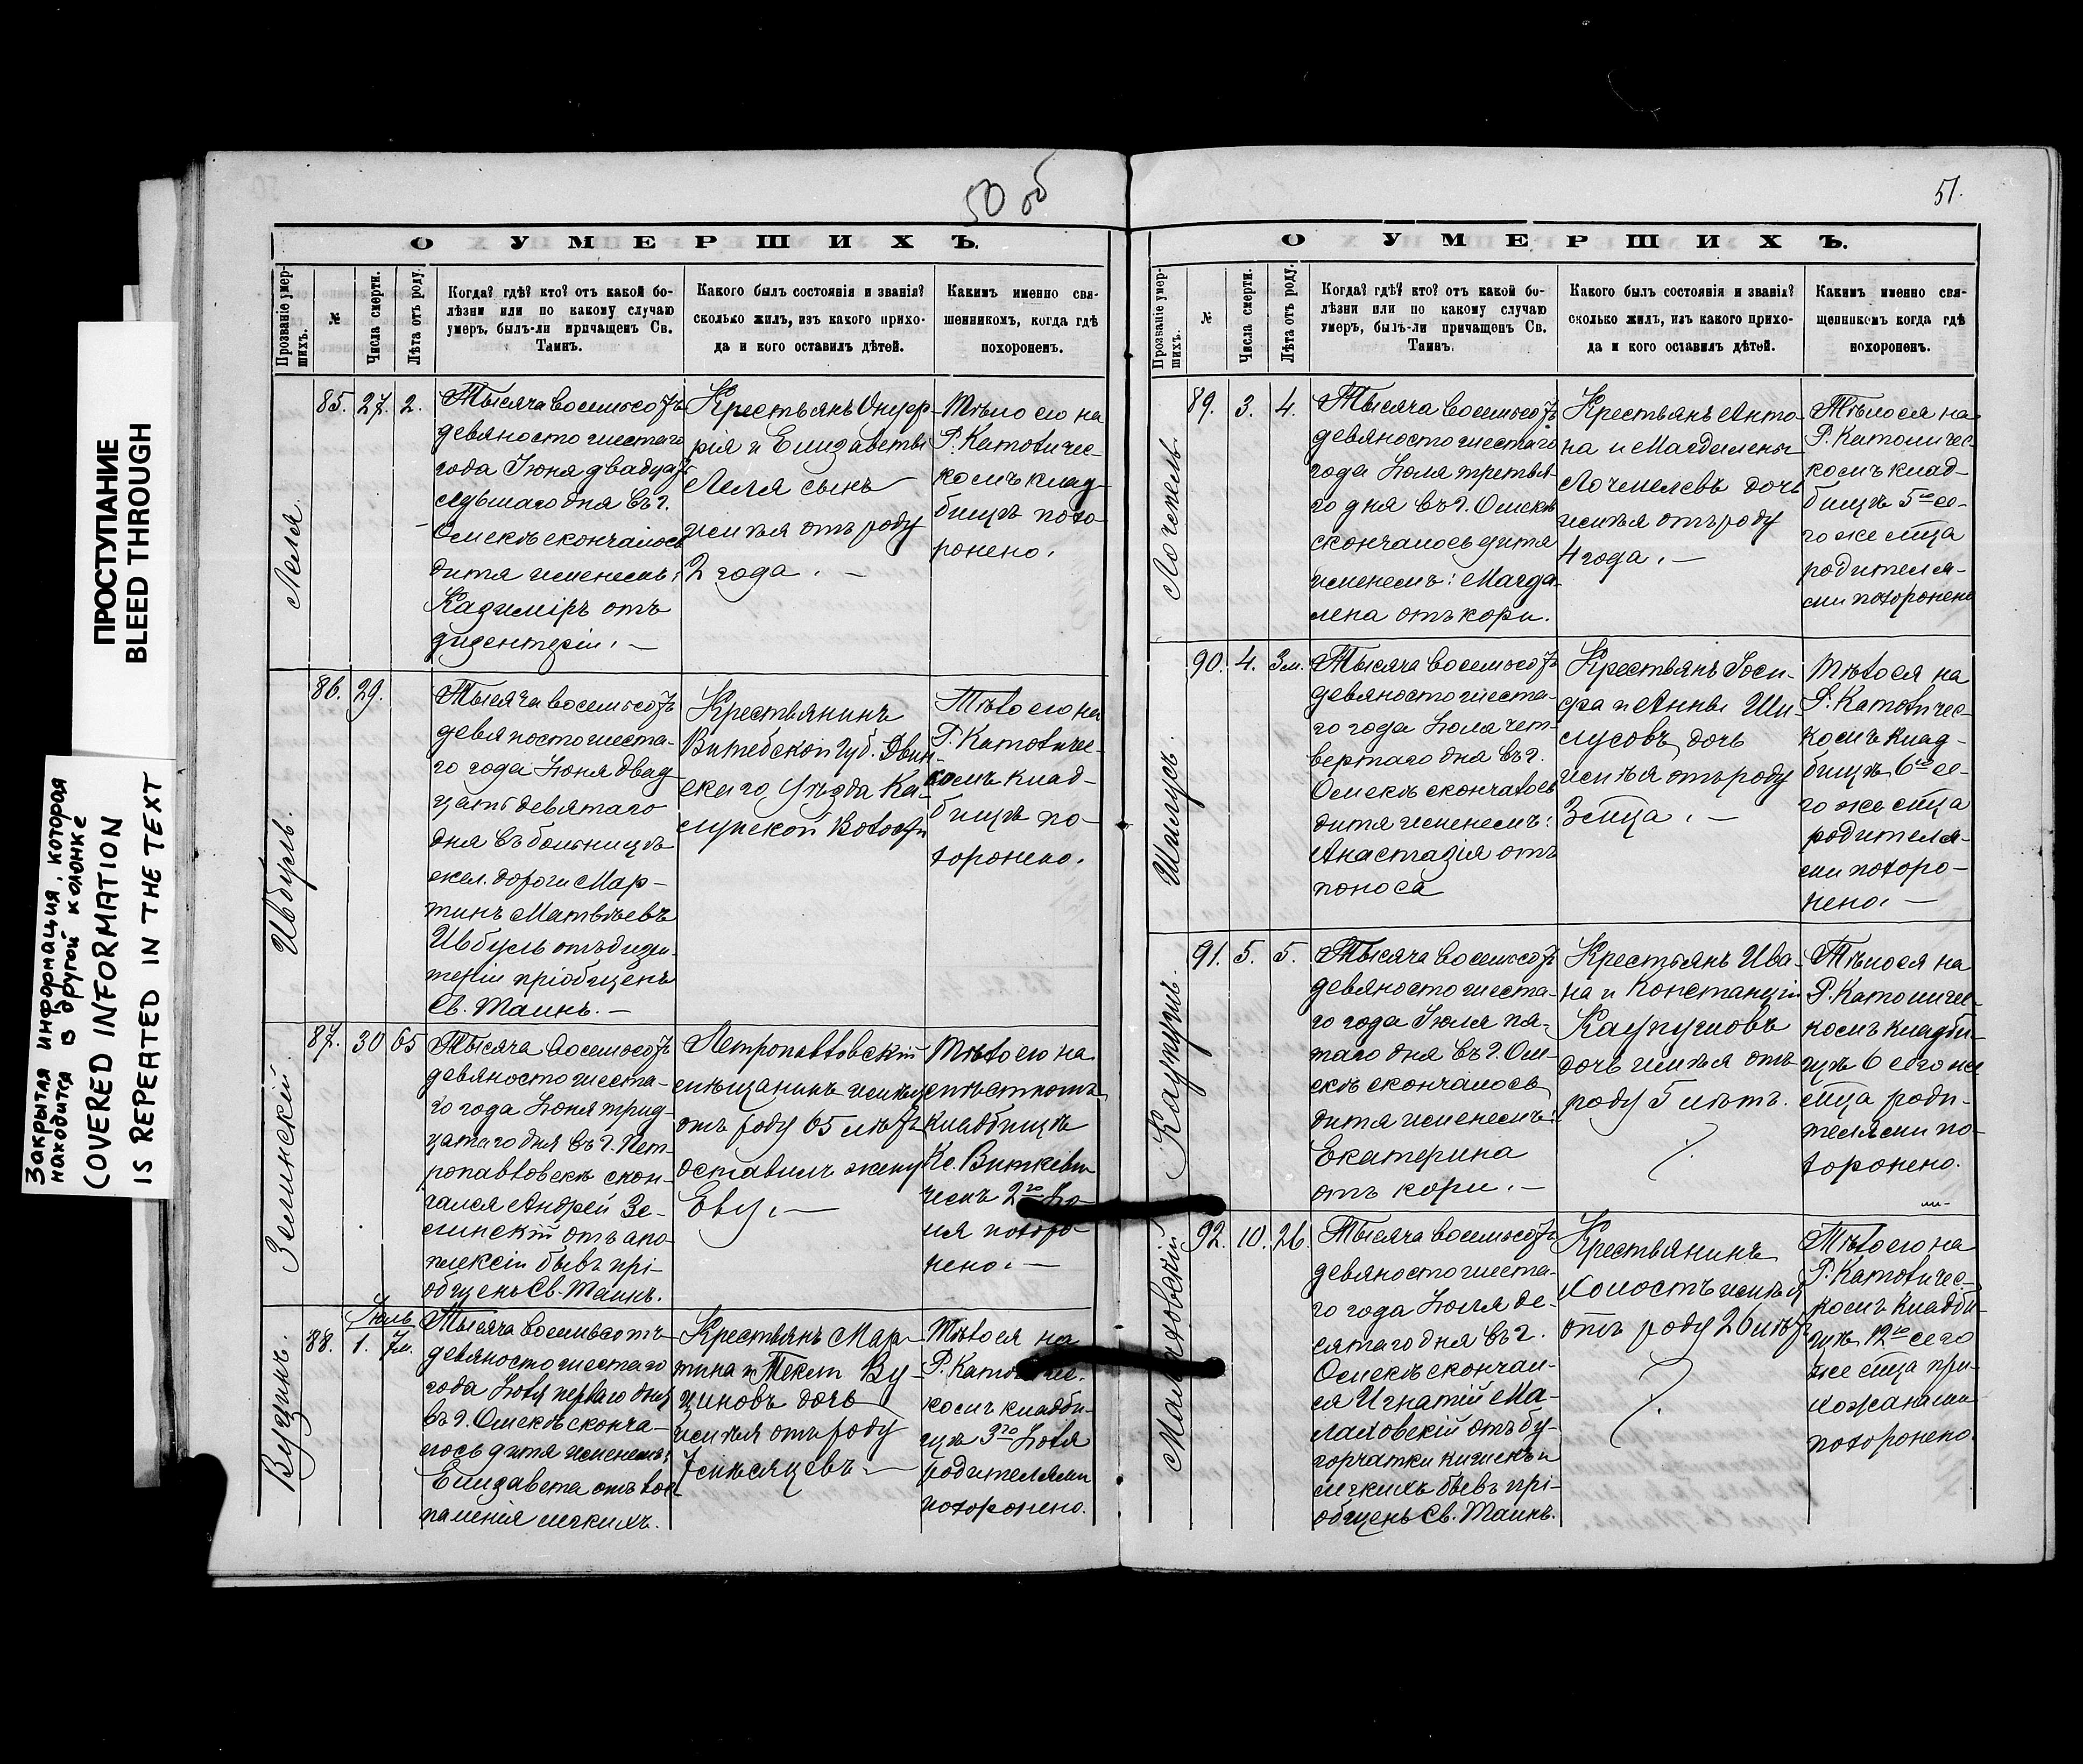 ПРОСТУПАНИЕ
BLEED THROUGH
Закрытая информация, которая
находится в другой колонке
(OVERED INFORMATION
IS REPEATED IN THE TEXT
50 об
О УМЕРШИХЪ.
Прозваніе умер-
шихъ.
№
Числа смерти.
Лѣта отъ роду.
Когда? гдѣ? кто? отъ какой бо-
лѣзни или по какому случаю
умеръ, былъ-ли причащенъ Св.
Таинъ.
Какого былъ состоянія и званія?
сколько жилъ, изъ какого прихо-
да и кого оставилъ дѣтей.
Какимъ именно свя-
щенникомъ, когда гдѣ
похороненъ.
Леля.
85. 27. 2.
Тысяча восемьсотъ
девяносто шестаго
года Іюня двадцать
седьмаго дня въ г.
Омскѣ скончалось
дитя именемъ:
Казиміръ отъ
дизентеріи. —
Крестьянъ Онуф-
рія и Елизаветы
Леля сынъ
имѣя отъ роду
2 года. —
Тѣло его на
Р. Католичес-
комъ клад-
бищѣ похо-
ронено.
86. 29.
Тысяча восемьсотъ
девяносто шеста-
го года Іюня двад-
цать девятаго
дня въ больницѣ
жел. дороги Мар-
тинъ Матвѣевъ
Цыбуль отъ дизен-
теріи пріобщенъ
Св. Таинъ. —
Крестьянинъ
Витебской губ. Двин-
скаго уѣзда
волости
Тѣло его на
Р. Католичес-
комъ клад-
бищѣ по-
хоронено.
Зелинскій.
87. 30 65
Тысяча восемьсотъ
девяносто шеста-
го года Іюня трид-
цатаго дня въ г. Пет-
ропавловскѣ скон-
чался Андрей Зе-
линскій отъ апо-
плексіи бывъ прі-
общенъ Св. Таинъ.
Петропавловскій
мѣщанинъ имѣя
отъ роду 65 лѣтъ
оставилъ жену
Еву. —
Тѣло его на
мѣстномъ
кладбищѣ
Кс. Виткеви-
чемъ 2го Ію-
ля похоро-
нено. —
Вуцинъ.
Іюль
88. 1. 7м.
Тысяча восемьсотъ
девяносто шестаго
года Іюля перваго дня
въ г. Омскѣ сконча-
лось дитя именемъ:
Елизавета отъ вос-
паленія легкихъ.
Крестьянъ Мар-
тина и Теклы Ву-
циновъ дочь
имѣя отъ роду
7 мѣсяцевъ —
Тѣло ея на
Р. Католичес-
комъ кладби-
щѣ 3го Іюля
родителями
похоронено.
51.
О УМЕРШИХЪ.
Прозваніе умер-
шихъ.
№
Числа смерти.
Лѣта отъ роду.
Когда? гдѣ? кто? отъ какой бо-
лѣзни или по какому случаю
умеръ, былъ-ли причащенъ Св.
Таинъ.
Какого былъ состоянія и званія?
сколько жилъ, изъ какого прихо-
да и кого оставилъ дѣтей.
Какимъ именно свя-
щенникомъ когда гдѣ
похороненъ.
Лочмель.
89. 3. 4.
Тысяча восемьсотъ
девяносто шестаго
года Іюля третья-
го дня въ г. Омскѣ
скончалось дитя
именемъ: Магда-
лена отъ кори.
Крестьянъ Анто-
на и Магдалены
Лочмелевъ дочь
имѣя отъ роду
4 года. —
Тѣло ея на
Р. Католичес-
комъ клад-
бищѣ 5го се-
го же мца
родителя-
ми похоронено
Шилусъ.
90. 4. 3м.
Тысяча восемьсотъ
девяносто шеста-
го года Іюля чет-
вертаго дня въ г.
Омскѣ скончалось
дитя именемъ:
Анастазія отъ
поноса
Крестьянъ Іоси-
фа и Анны Ши-
лусовъ дочь
имѣя отъ роду
3 мца. —
Тѣло ея на
Р. Католичес-
комъ клад-
бищѣ 6го се-
го же мца
родителя-
ми похоро-
нено. —
91. 5. 5.
Тысяча восемьсотъ
девяносто шеста-
го года Іюля пя-
таго дня въ г. Ом-
скѣ скончалось
дитя именемъ:
Екатерина
отъ кори. —
Крестьянъ Ива-
на и Констанціи
дочь имѣя отъ
роду 5 лѣтъ.
Тѣло ея на
Р. Католичес-
комъ кладби-
щѣ 6 сего же
мца роди-
телями по-
хоронено.
Малаховскій
92. 10. 26.
Тысяча восемьсотъ
девяносто шеста-
го года Іюля де-
сятаго дня въ г.
Омскѣ скончал-
ся Игнатій Ма-
лаховскій отъ бу-
горчатки кишекъ и
легкихъ бывъ прі-
общенъ Св. Таинъ.
Крестьянинъ
холостъ имѣя
отъ роду 26 лѣтъ
Тѣло его на
Р. Католичес-
комъ кладби-
щѣ 12го сего
же мца при-
хожанами
похоронено.